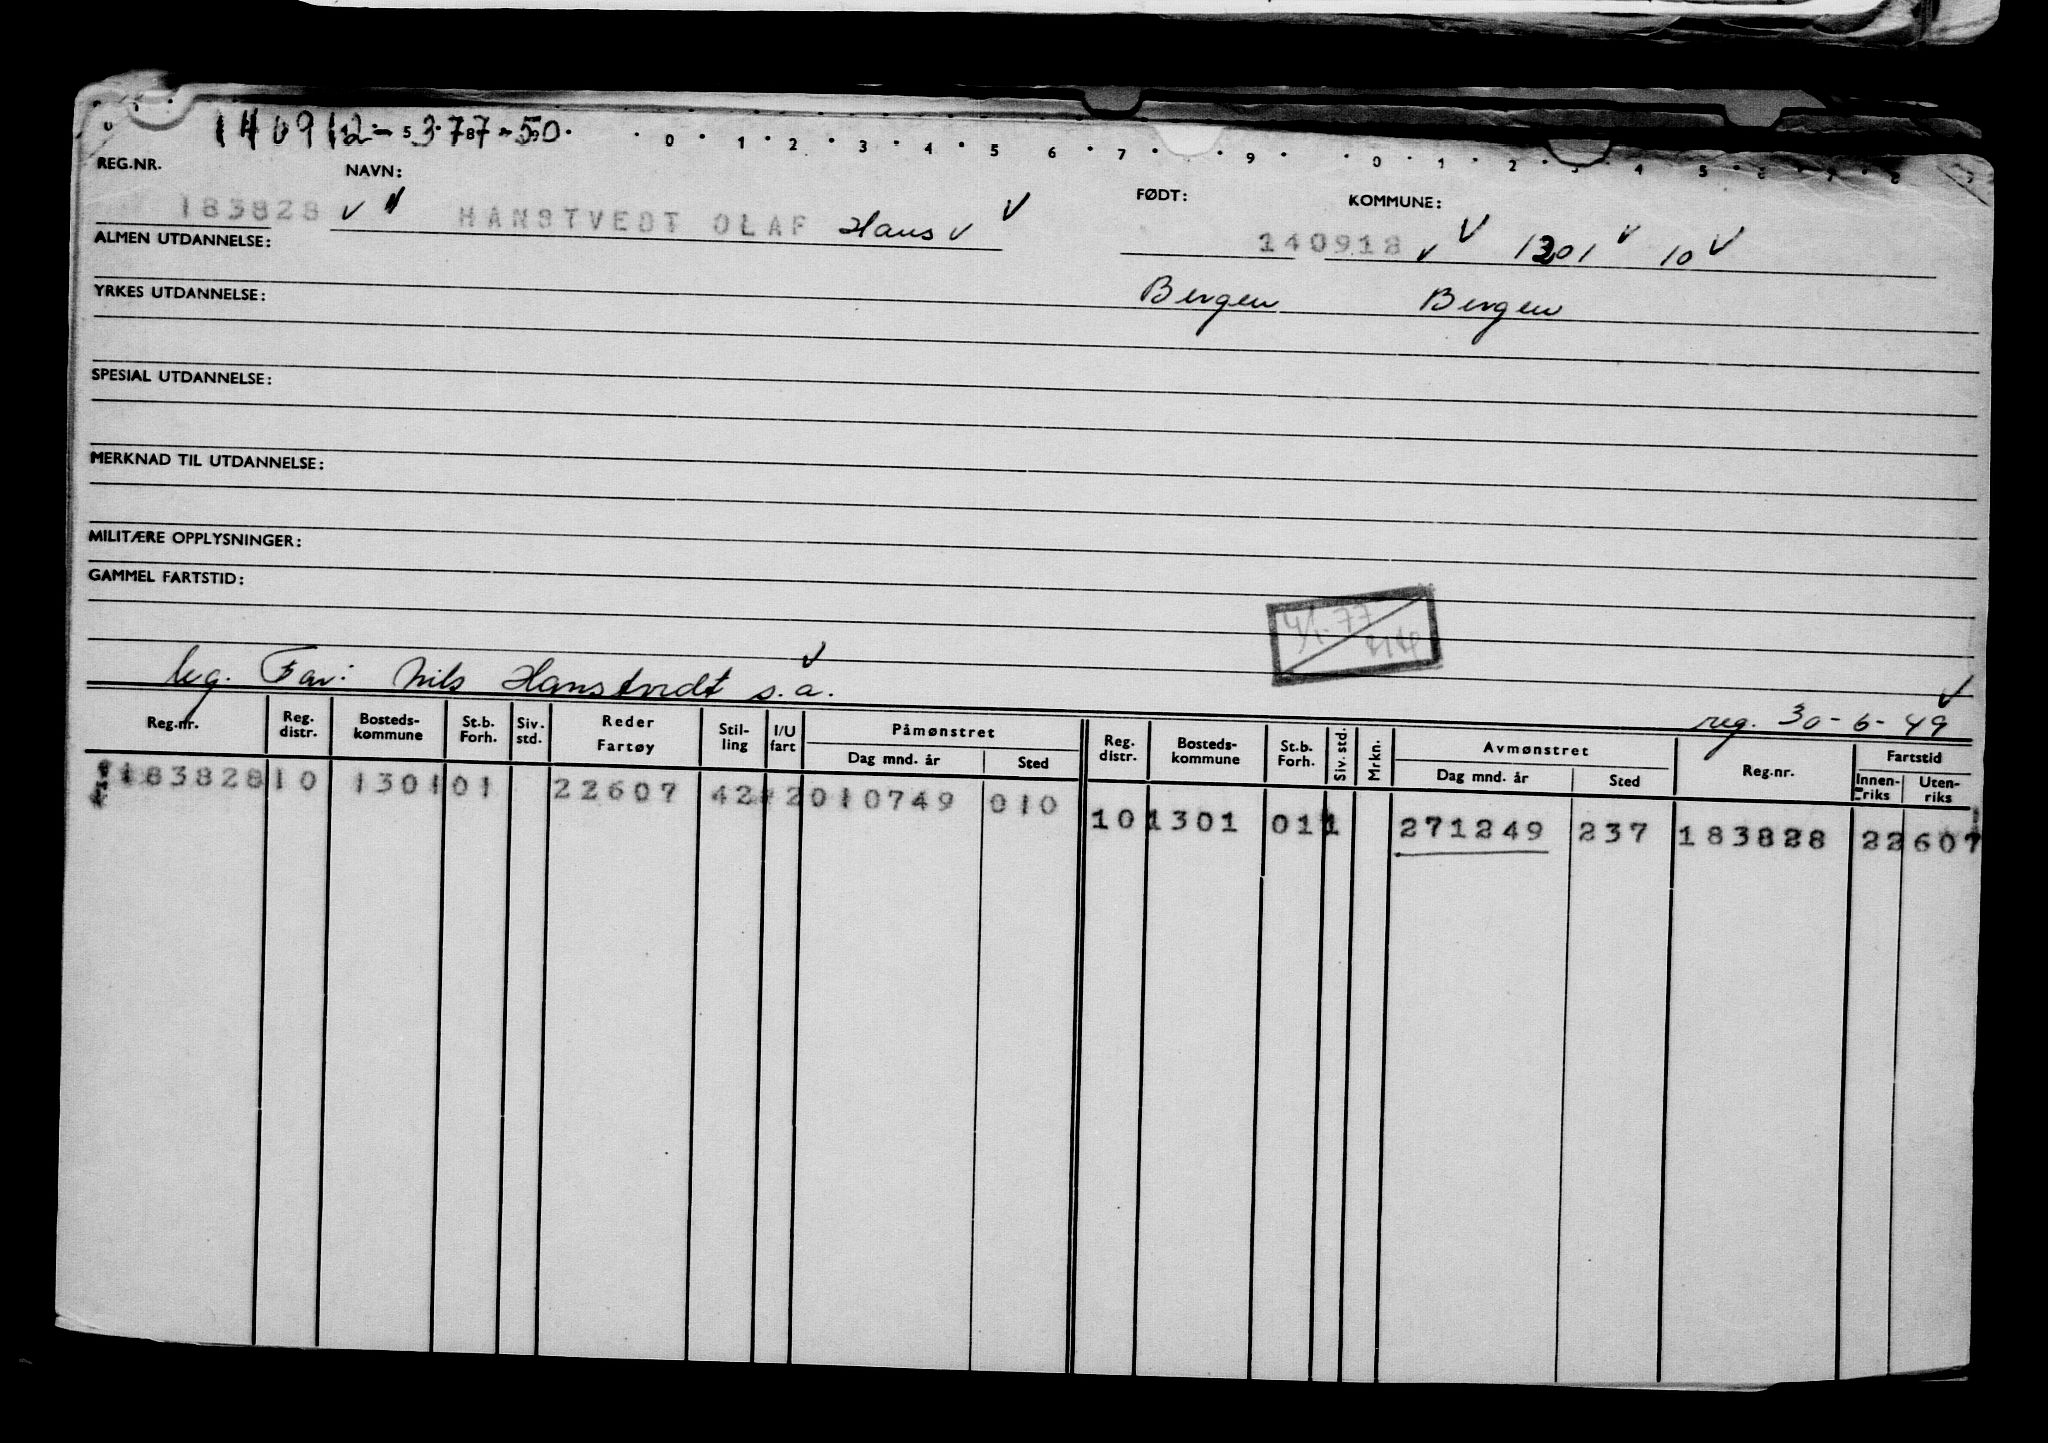 0 1 2 3 4 5 6 7 9 0 1 2 3 4 5 6 7 8
REG.NR. NAVN: FØDT: KOMMUNE:
183828 HANSTVEDT OLAF Hans 140918 1301 10
ALMEN UTDANNELSE:
Bergen Bergen
YRKES UTDANNELSE:
SPESIAL UTDANNELSE:
MERKNAD TIL UTDANNELSE:
MILITÆRE OPPLYSNINGER:
GAMMEL FARTSTID:
4/1-77
leg. Far: Nils Hanstvedt s.a.
reg. 30-6-49
Reg.nr. Reg. distr. Bosteds- kommune St.b. Forh. Siv. std. Reder Fartøy Stil- ling I/U fart Påmønstret Dag mnd. år Sted Reg. distr. Bosteds- kommune St.b. Forh. Siv. std. Mrkn. Avmønstret Dag mnd. år Sted Reg.nr. Fartstid Innen- riks Uten- riks
183828 10 1301 01 22607 42 2 010749 010
10 1301 01 1 271249 237 183828 22607